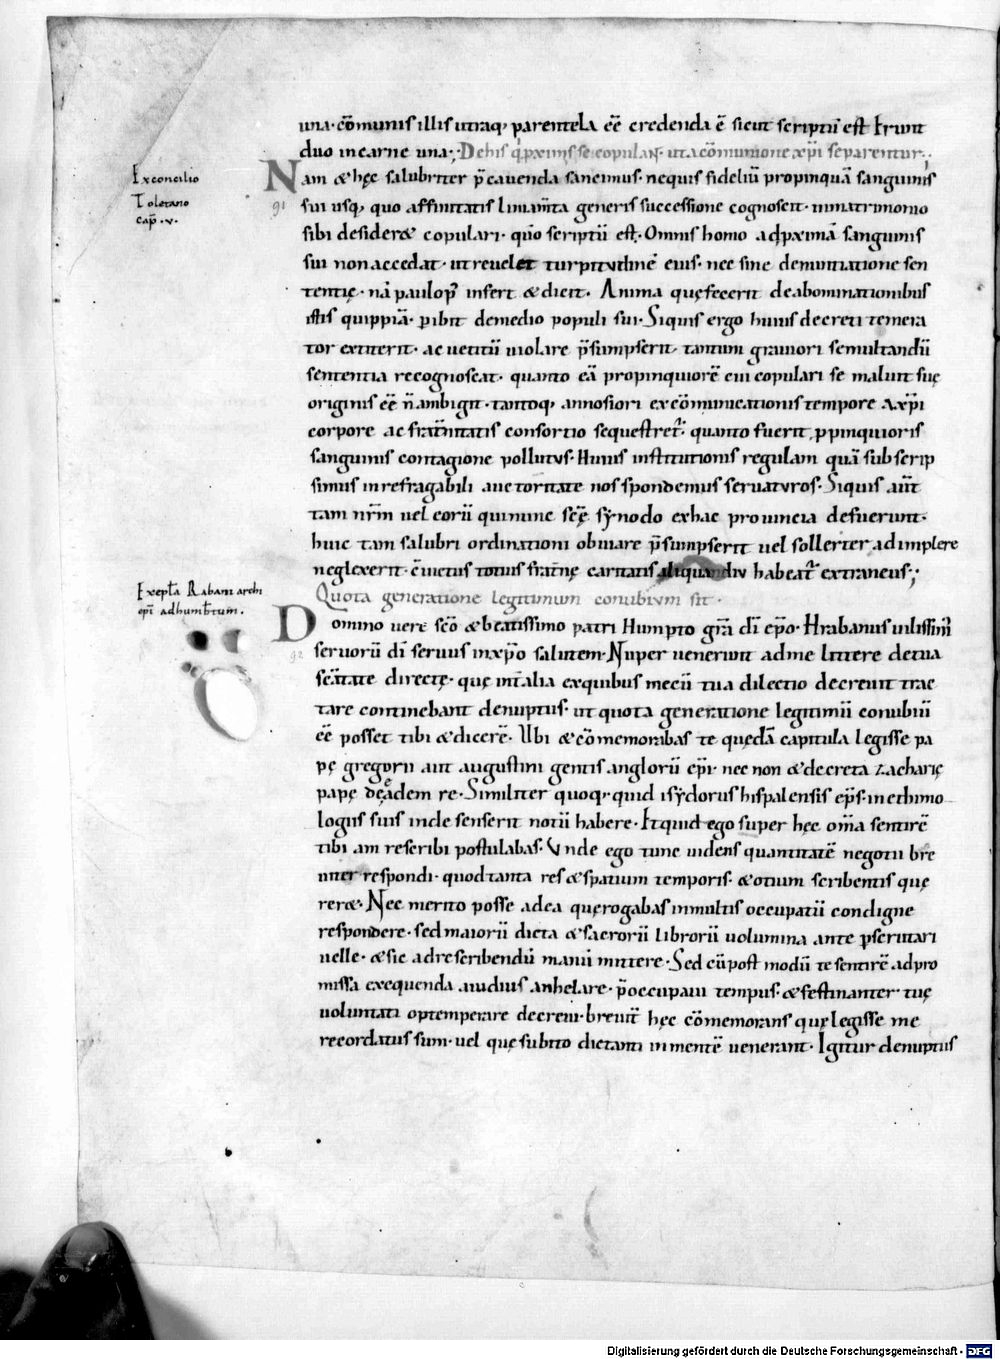 una· cōmunis illis utraq; parentela eē credenda ē sicut scriptū est Erunt
duo in carne una·; De his q̄ p̄ximis se copulan̄· ut a cōmunione xp̄i separentur·;
Ex concilio
Toletano
cap̄·v·
Nam & hęc salubriter p̄cauenda sancimus· nequis fideliū propinquā sanguinis
91
sui usq; quo affinitatis liniam̄ta generis successione cognoscit· in matrimonio
sibi desider& copulari· qūo scriptū est· Omnis homo ad p̄ximā sanguinis
sui non accedat· ut reuelet turpitudinē eius· nec sine denuntiatione sen
tentię· nā paulop̄ infert & dicit· Anima quę fecerit de abominationibus
istis quippiā· p̄ibit de medio populi sui· Siquis ergo huius decreti temera
tor extiterit· ac uetitū uiolare p̄sumpserit· tantum grauiori se multandū
sententia recognoscat· quanto eā propinquiorē cui copulari se maluit suę
originis eē n̄ ambigit· tantoq; annosiori excōmunicationis tempore a xp̄i
corpore ac frat̄nitatis consortio sequestret̄· quanto fuerit p̄pinquioris
sanguinis contagione pollutus· Huius institutionis regulam quā subscrip
simus inrefragabili auctoritate nos spondemus seruaturos· Siquis aūt
tam nr̄m uel eorū qui nunc scē synodo ex hac prouincia defuerunt·
huic tam salubri ordinationi obuiare p̄sumpserit uel sollerter adimplere
neglexerit· c̄uictus totius frat̄nę caritatis aliquandiu habeat̄ extraneus·;
Quota generatione legitimum conubium sit·
Ex epl̄a Rabani archi
ep̄i ad humb̄tum·
Domino uere scō & beatissimo patri Humpto gr̄a dī ep̄o· Hrabanus uilissim̄
92
seruorū dī seruus in xp̄o salutem· Nuper uenerunt ad me littere de tua
sc̄itate directę· quę int̄ alia ex quibus mecū tua dilectio decreuit trac
tare continebant de nuptus· ut quota generatione legitimū conubiū
eē posset tibi & dicerē· Ubi & cōmemorabas te quędā capitula legisse pa
pę gregorii aut augustini gentis anglorū ep̄i· nec non & decreta zacharię
papę de eadem re· Similiter quoq; quid isydorus hispalensis ep̄s· in ethimo
logiis suis inde senserit notū habere· Et quid ego super hęc om̄a sentirē
tibi am rescribi postulabas· Unde ego tunc uidens quantitatē negotii bre
uiter respondi· quod tanta res & spatium temporis· & otium scribentis quę
rer&· Nec merito posse ad ea quę rogabas in multis occupatū condigne
respondere· sed maiorū dicta & sacrorū librorū uolumina ante p̄scrutari
uelle· & sic ad rescribendū manū mittere· Sed cū post modū te sentirē ad pro
missa exequenda auidius anhelare· p̄occupaui tempus· & festinanter tuę
uoluntati optemperare decreui· breuit̄ hęc cōmemorans quę legisse me
recordatus sum· uel quę subito dictanti in mentē uenerant· Igitur de nuptiis
Digitalisierung gefördert durch die Deutsche Forschungsgemeinschaft - DFG